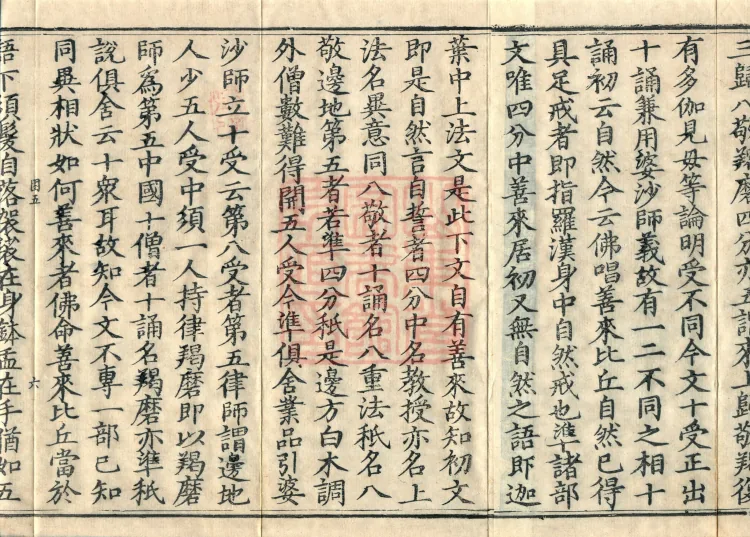 三歸八敬羯磨四分亦五謂來上歸敬羯
有多伽見毋等論明受不同今文十受正出
十誦兼用婆沙師義故有一二不同之相十
誦初云自然今云佛唱善來比丘自然已得
具足戒者即指羅漢身中自然戒也準諸部
文唯四分中善來居初又無自然之語即迦
葉中上法文是此下文自有善來故知初文
即是自然言自誓者四分中名教授亦名上
法名異意同八敬者十誦名八重法秖名八
敬邊地第五者若準四分秖是邊方白木調
外僧數難得開五人受今準俱舍業品引婆
沙師立十受云第八受者第五律師謂邊地
人少五人受中須一人持律羯磨即以羯磨
師為第五中國十僧者十誦名羯磨亦準秖
說俱舍云十眾耳故知今文不專一部已知
同異相狀如何善來者佛命善來比丘當於
困五 六
語下須髮自落袈裟在身鉢盂在手猶如五